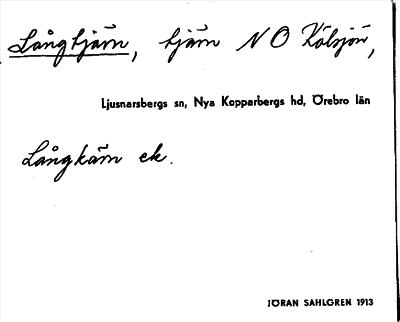 Långtjärn, tjärn NO Kölsjön,
Ljusnarsbergs sn, Nya Kopparbergs hd, Örebro län
Långkärn ek.
JÖRAN SAHLGREN 1913